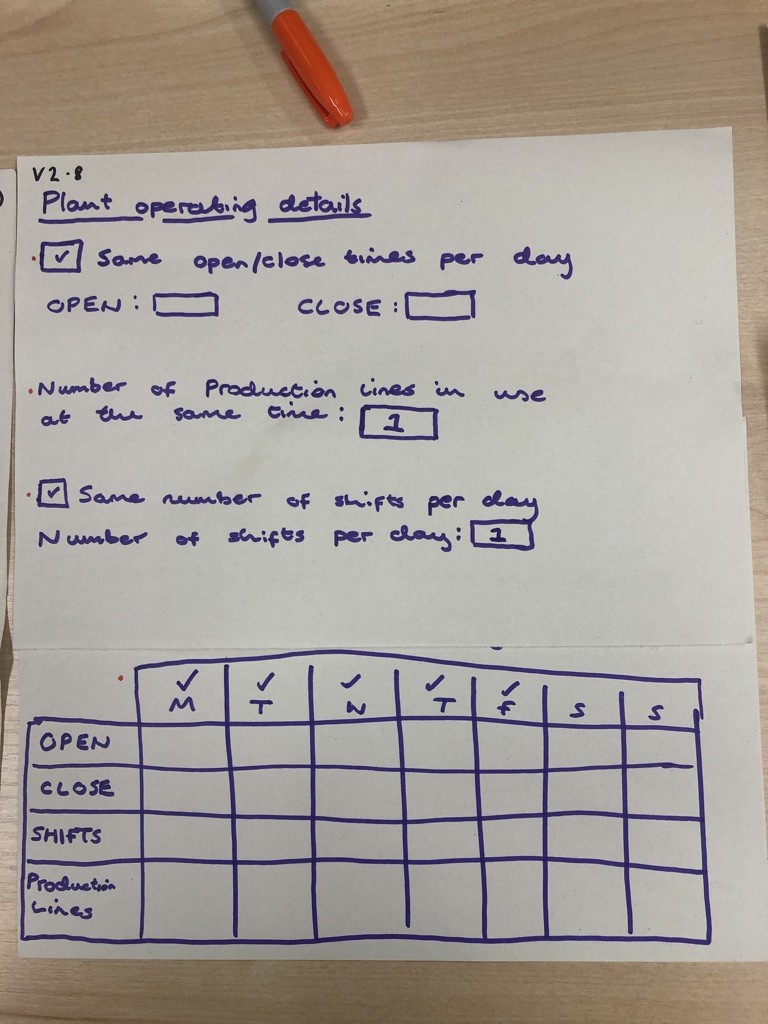 V2.8
Plant operating details
☑ Same open/close times per day
OPEN: CLOSE:
Number of Production Lines in use
at the same time: 1
☑ Same number of shifts per day
Number of shifts per day: 1
✓ ✓ ✓ ✓ ✓
M T W T F S S
OPEN
CLOSE
SHIFTS
Production
Lines